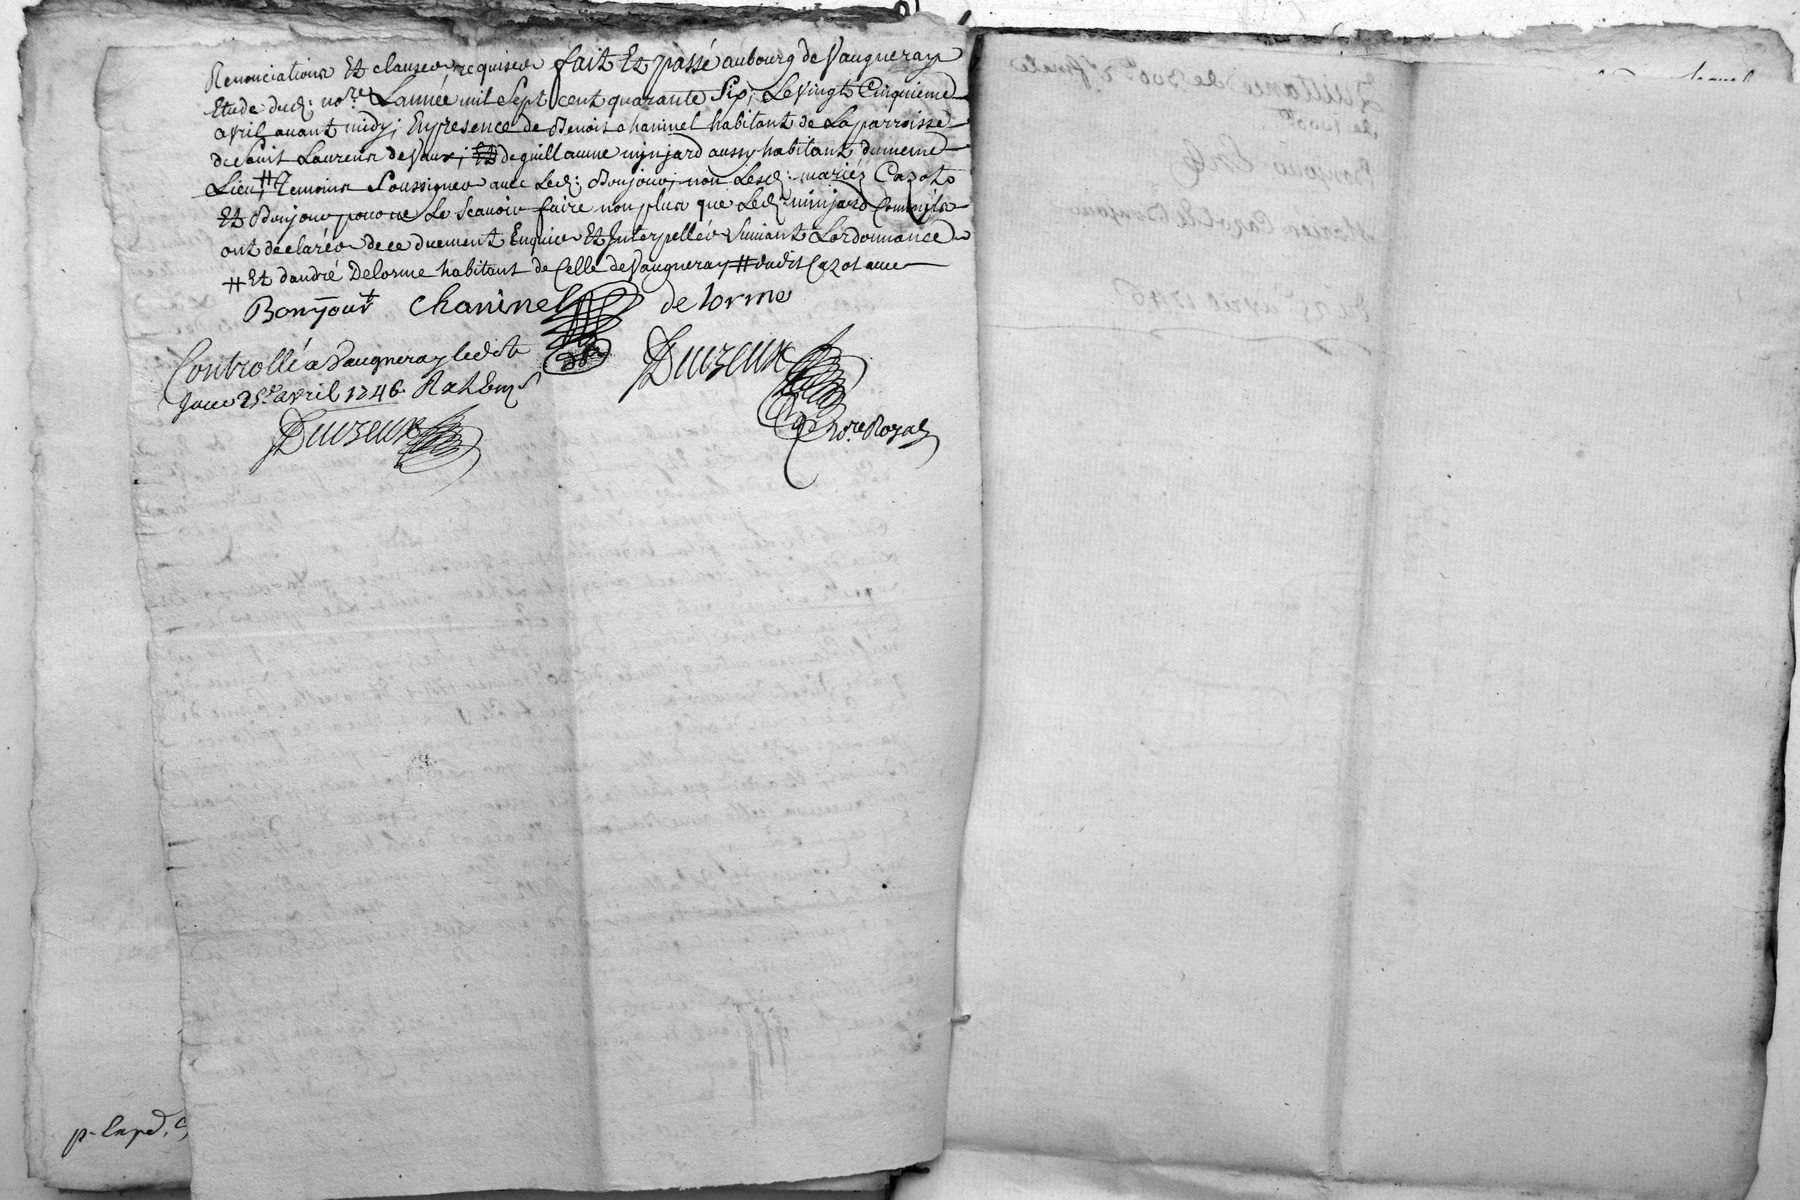 Renonciations Et clauses requises fait Et passé au bourg de Vaugneray
Etude dud: no.re L'année mil sept cent quarante Six; Le vingt Cinquieme
avril avant midy; En presence de Benoit chaninel habitant de La parroisse
de saint Laurens de Vaux; de guillaume minjard aussy habitant du meme
Lieu # Temoins Soussignes avec Led: Bonjour; non Lesd: mariés Cazot
Et Bonjour pour ne Le scavoir faire non plus que Led: minjard Comm'ils
ont declarés de ce duement Enquis Et Interpellés Suivant L'ordonnance
# Et d'andré Delorme habitant de Celle de Vaugneray # dudit Cazot avec
Bonjour Chaninel de lorme
Controllé a Vaugneray led. no.re
25e avril 1746.
Duvzeux
Duvzeux
No.re Royal
p. Exped.
Quittance de 300
de
Bonjour
Mariés Cazot et Bonjour
Du 25 avril 1746